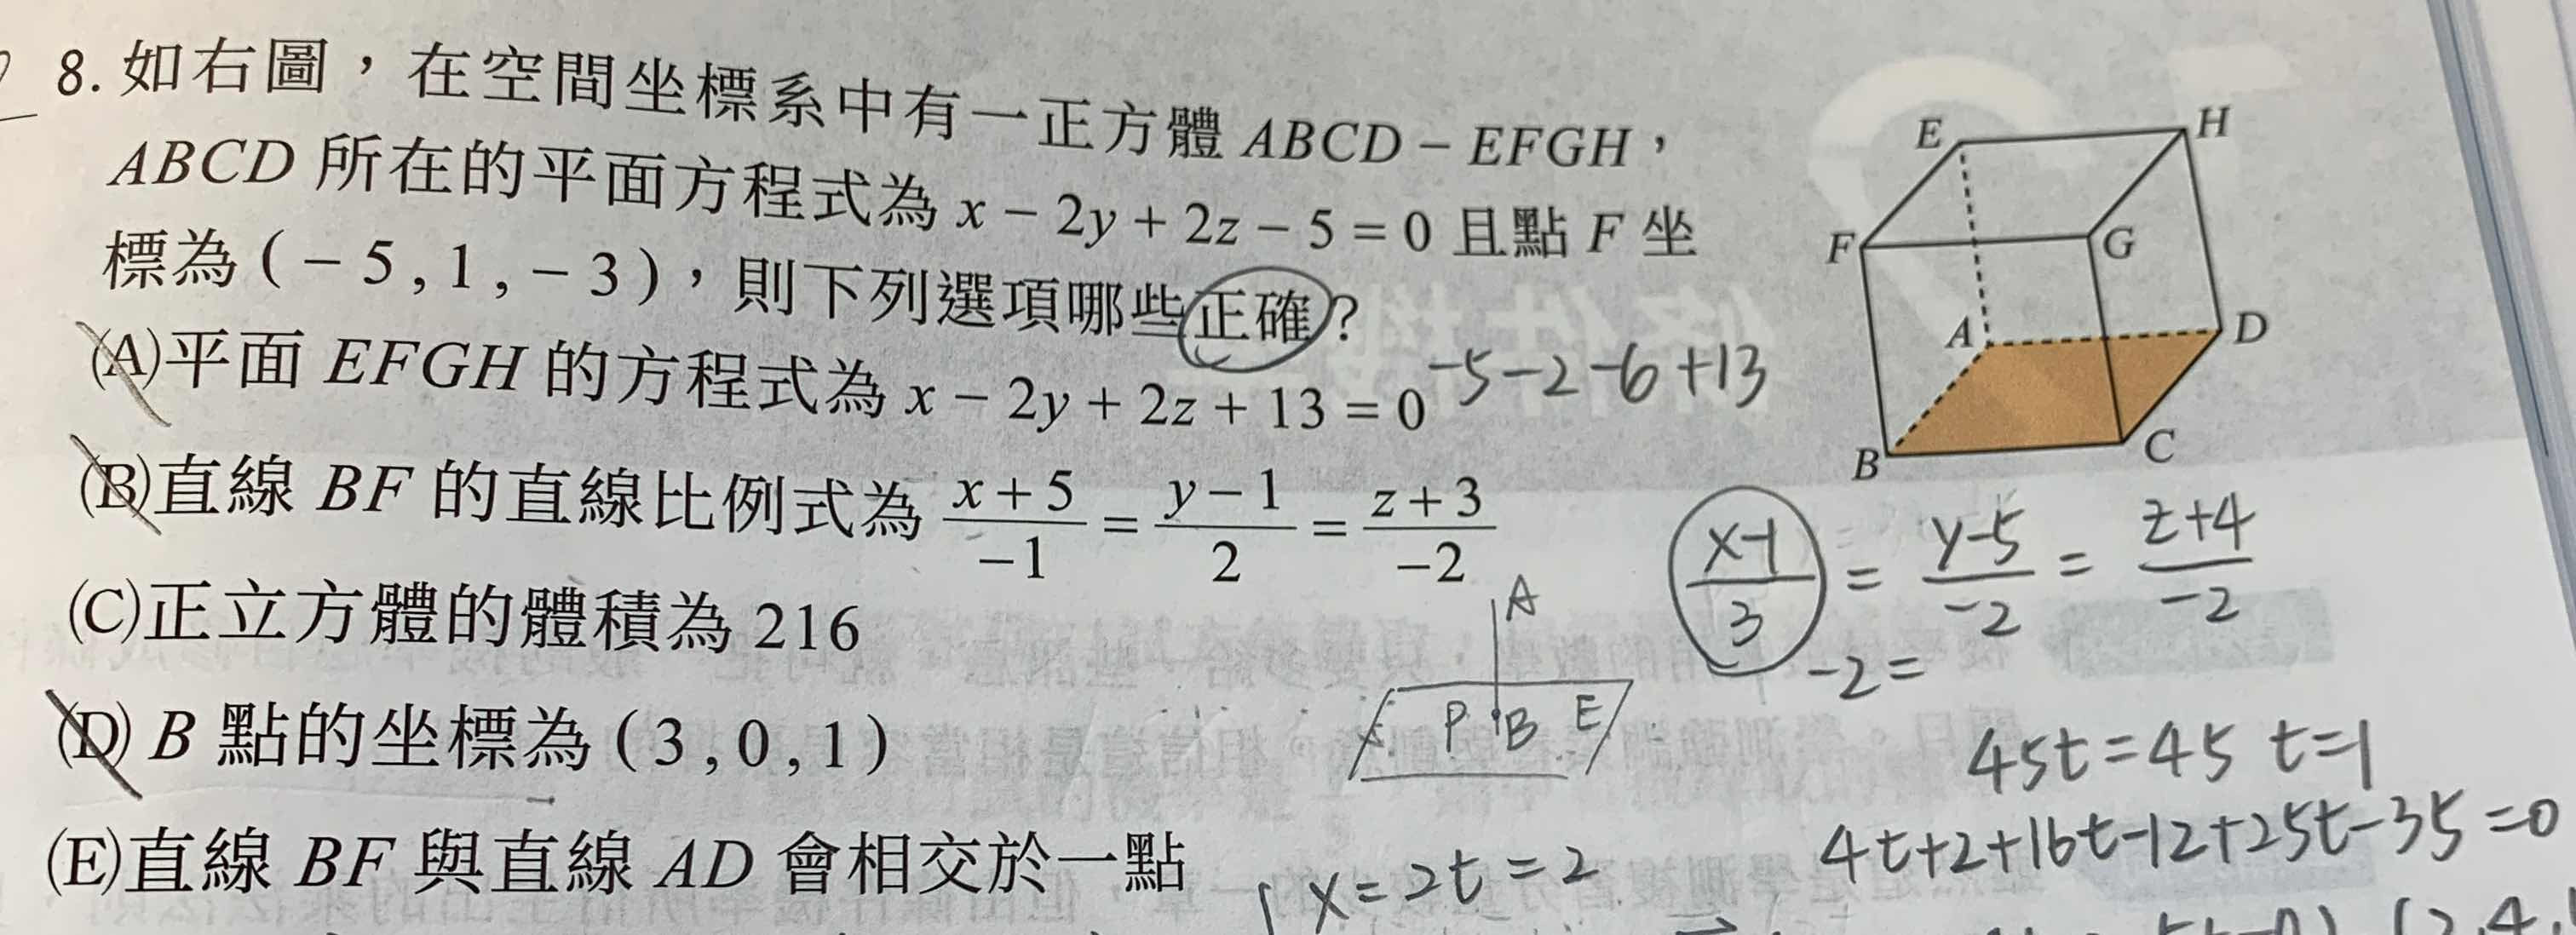 8. 如右圖，在空間坐標系中有一正方體 ABCD – EFGH，
ABCD 所在的平面方程式為 x – 2y + 2z – 5 = 0 且點 F 坐
標為 ( – 5 , 1 , – 3 )，則下列選項哪些正確？
(A)平面 EFGH 的方程式為 x – 2y + 2z + 13 = 0
-5-2-6+13
(B)直線 BF 的直線比例式為 \frac{x+5}{-1} = \frac{y-1}{2} = \frac{z+3}{-2}
(C)正立方體的體積為 216
(D) B 點的坐標為 ( 3 , 0 , 1 )
(E)直線 BF 與直線 AD 會相交於一點
E
H
F
G
A
D
B
C
\frac{x-1}{3} = \frac{y-5}{-2} = \frac{z+4}{-2}
-2=
A
P B E
45t=45 t=1
4t+2+16t-12+25t-35=0
x=2t=2